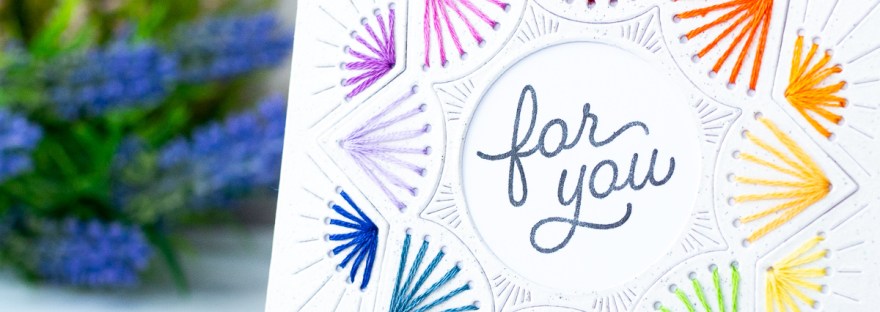 for
you